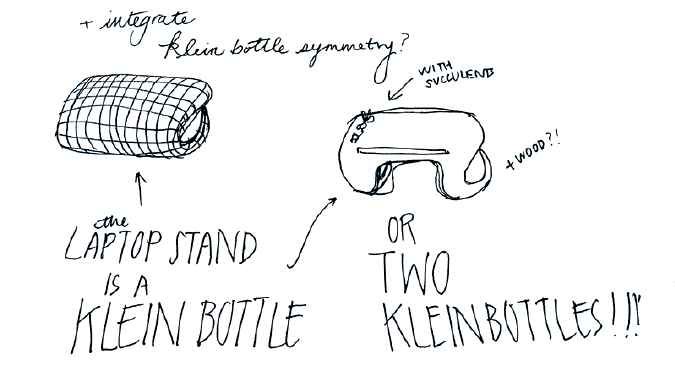 + integrate
klein bottle symmetry?
WITH
SUCCULENTS
+ WOOD?!
the
LAPTOP STAND
IS A
KLEIN BOTTLE
OR
TWO
KLEIN BOTTLES!!!